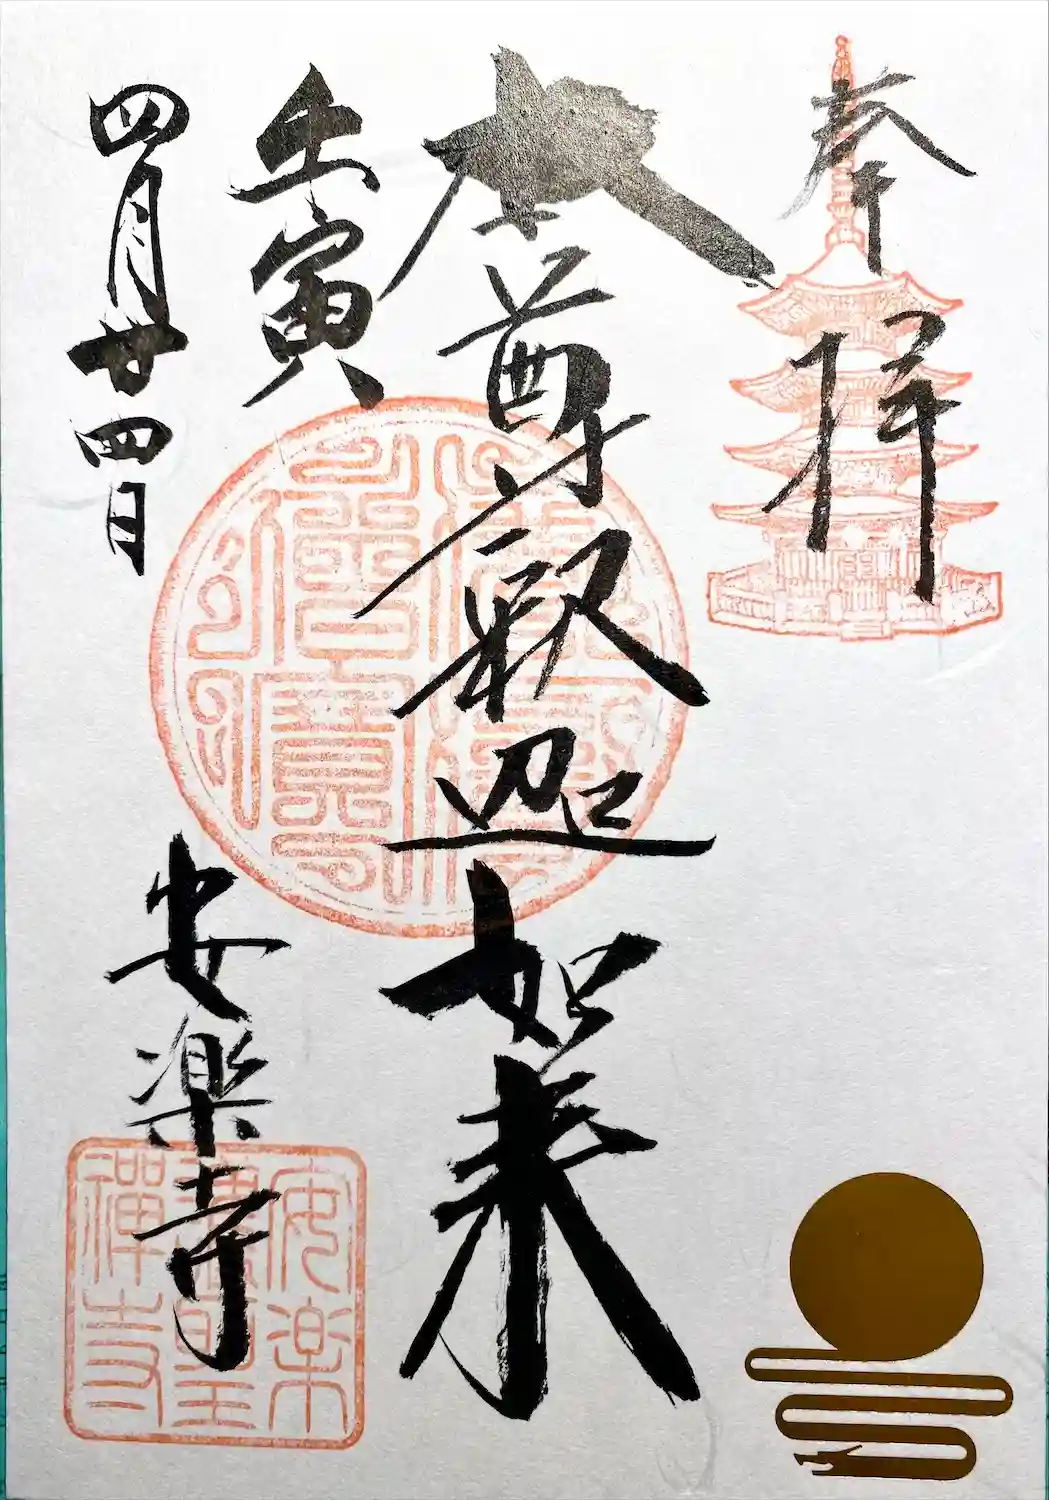 奉拝
本尊釈迦如来
壬寅
四月廿四日
安楽寺
安楽
護聖
禅寺